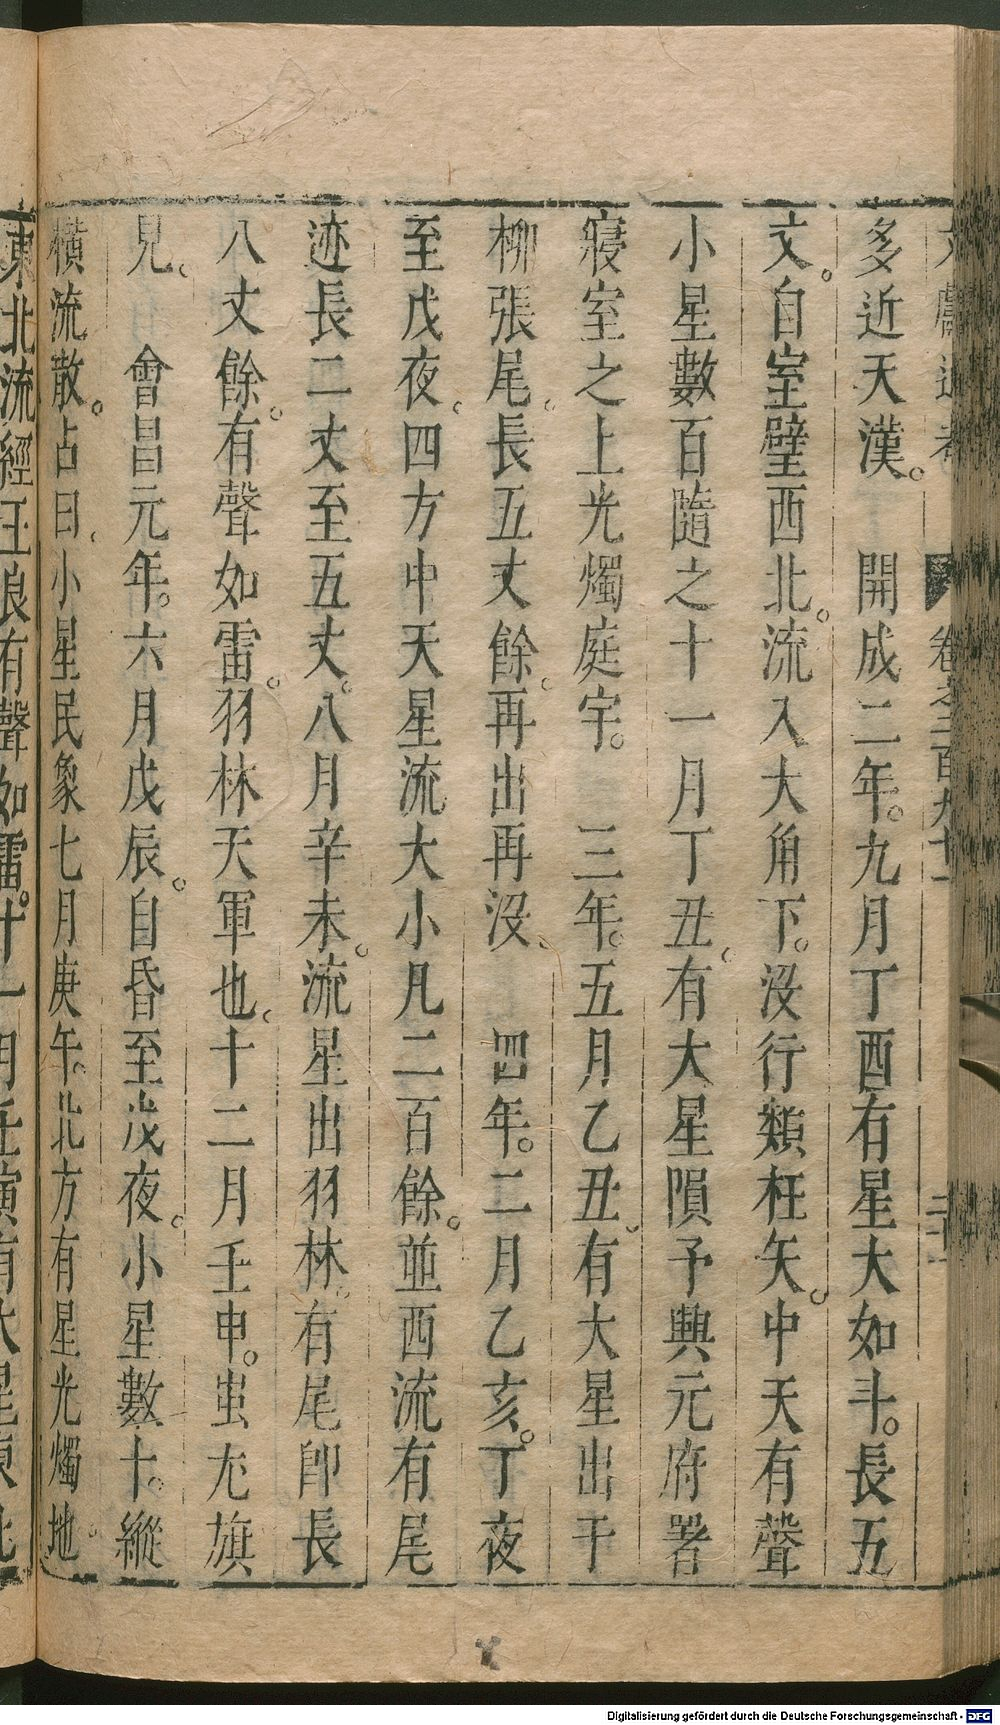 文獻通考 卷之二百九十一 二十一
多近天漢。 開成二年。九月丁酉有星大如斗。長五
文。自室壁西北。流入大角下。沒行類枉矢。中天有聲
小星數百隨之十一月丁丑。有大星隕予興元府署
寢室之上光燭庭宇。 三年。五月乙丑。有大星出于
柳張尾。長五丈餘。再出再沒。 四年。二月乙亥。丁夜
至戊夜。四方中天星流大小凡二百餘。並西流有尾
迹長二丈至五丈。八月辛未。流星出羽林。有尾卽長
八丈餘。有聲如雷。羽林天軍也。十二月壬申。蚩尤旗
見。 會昌元年。六月戊辰。自昏至戊夜。小星數十。縱
橫流散。占曰。小星民象七月庚午。北方有星光燭地。
東北流經王良有聲如雷。十一月壬寅有大星東北
Digitalisierung gefördert durch die Deutsche Forschungsgemeinschaft - DFG